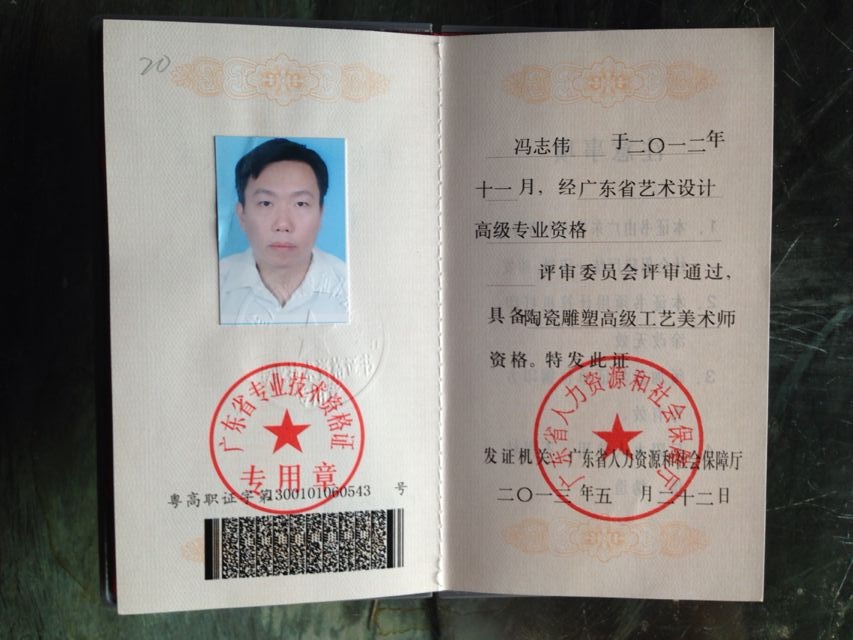 20
广东省专业技术资格证
专用章
粤高职证字第1300101060543 号
冯志伟 于二〇一二年
十一月，经广东省艺术设计
高级专业资格
评审委员会评审通过，
具备陶瓷雕塑高级工艺美术师
资格。特发此证
广东省人力资源和社会保障厅
发证机关：广东省人力资源和社会保障厅
二〇一三年五 月二十二日